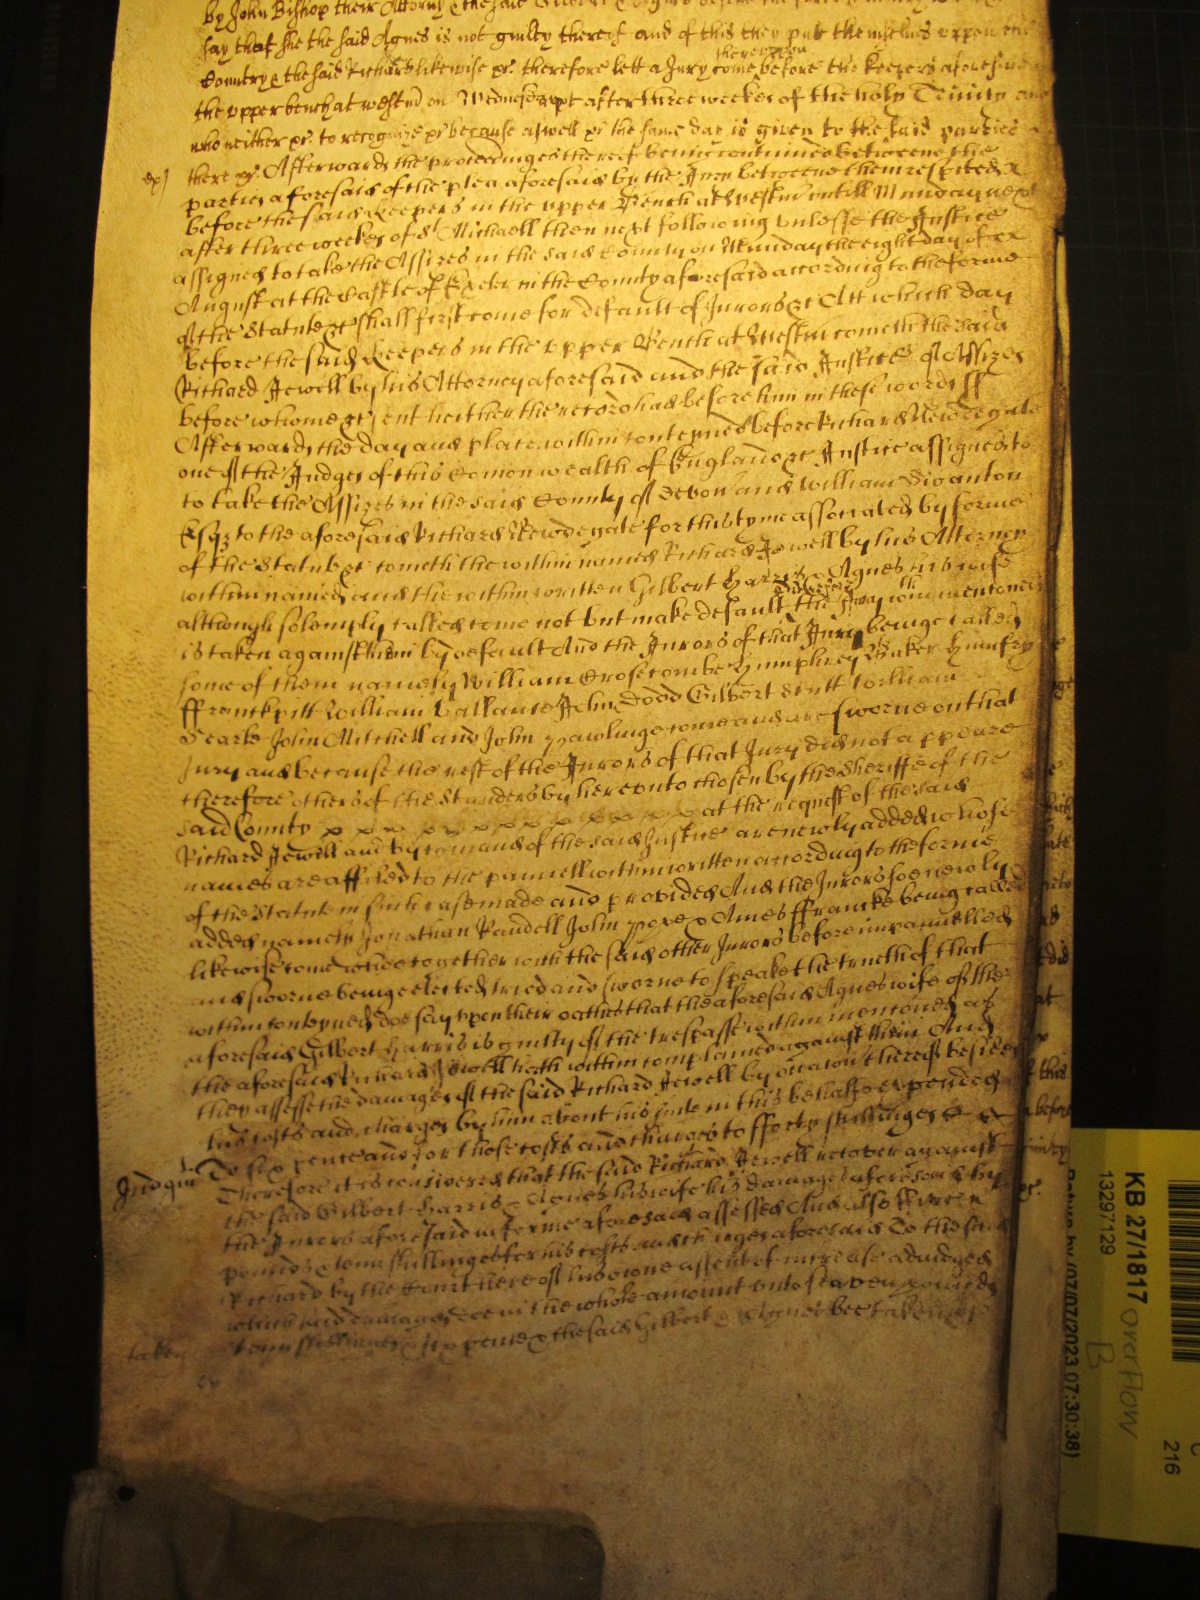 by John Bishop their Attorny & the said
say that she the said Agnes is not guilty thereof and of this they put themselves uppon the
Country & the said Richard likewise &c. therefore lett a Jury thereuppon come before the Keepers aforesaid
the upper bench at westm on Wednesday next after three weekes of the holy Trinity and
who neither &c. to recognize &c because aswell &c the same day is given to the said parties
exr there &c. Afterwards the proceedinges thereof being continued betweene the
parties aforesaid of the plea aforesaid by the Jury betweene them respited
before the said Keepers in the upper Bench at Westm untill Munday next
after three weekes of St Michaell then next following unlesse the Justice
assigned to take the Assizes in the said County on Munday the eight day of
August at the Castle of Exeter in the County aforesaid according to the forme
of the Statute &c shall first come for default of Jurors &c Att which day
before the said Keepers in the upper Bench at Westm cometh the said
Richard Jewell by his Attorney aforesaid and the said Justice of Assizes
before whome &c sent heither the record had before him in these words ss
Afterwards the day and place within conteyned before Richard Newdegate
one of the Judges of this Comon wealth of England &c Justice assigned to
to take the Assizes in the said County of Devon and William
Esqr to the aforesaid Richard Newdegate for this tyme associated by forme
of the Statute &c cometh the within named Richard Jewell by his Attorney
within named and the within written Gilbert Harris & Agnes his wife
although solemply called come not but make default therefore the Jury within mentoned
is taken against them by default And the Jurors of that Jury beinge called
some of them namely William Crosecombe Humphrey Baker Humfry
ffrenckpitt William Vallance John Dodd Gilbert Stutt William
Searle John Mitchell and John Pawlinge come and are sworne on that
Jury and because the rest of the Jurors of that Jury did not appeare
therefore others of the Standers by hereunto chosen by the Sheriffe of the
said County at the request of the said
Richard Jewell and by comand of the said Justice are newly added whose
names are affiled to the pannell within written according to the forme
of the Statute in such case made and provided And the Jurors soe newly
added namely Jonathan Randell John Pope & Ames ffrancke being called
likewise come whoe together with the said other Jurors before impannelled
and sworne beinge elected tried and sworne to speake the trueth of that
within conteyned doe say upon their oathes that the aforesaid Agnes wife of the
aforesaid Gilbert Harris is guilty of the trespasse within mentoned as
the aforesaid Richard Jewell hath within complained against them And
they assesse the damages of the said Richard Jewell by occacon thereof besides
his costs and charges by him about his suite in this behalfe expended
To six pence and for those costs and charges to fforty shillinges
Judgmt Therefore it is considered that the said Richard Jewell recover against
the said Gilbert Harris & Agnes his wife his damages aforesaid by
the Jurors aforesaid in forme aforesaid assessed And also
pounds & tenn shillinges for his costs and charges aforesaid To the said
Richard by the Court here of his owne assent of increase adjudged
which said damages &c in the whole amount unto seaven pounds
tenn shillinges & six pence & the said Gilbert & Agnes bee taken
taken
KB 27/1817
13297129
overflow
B
216
07/07/2023 07:30:38)